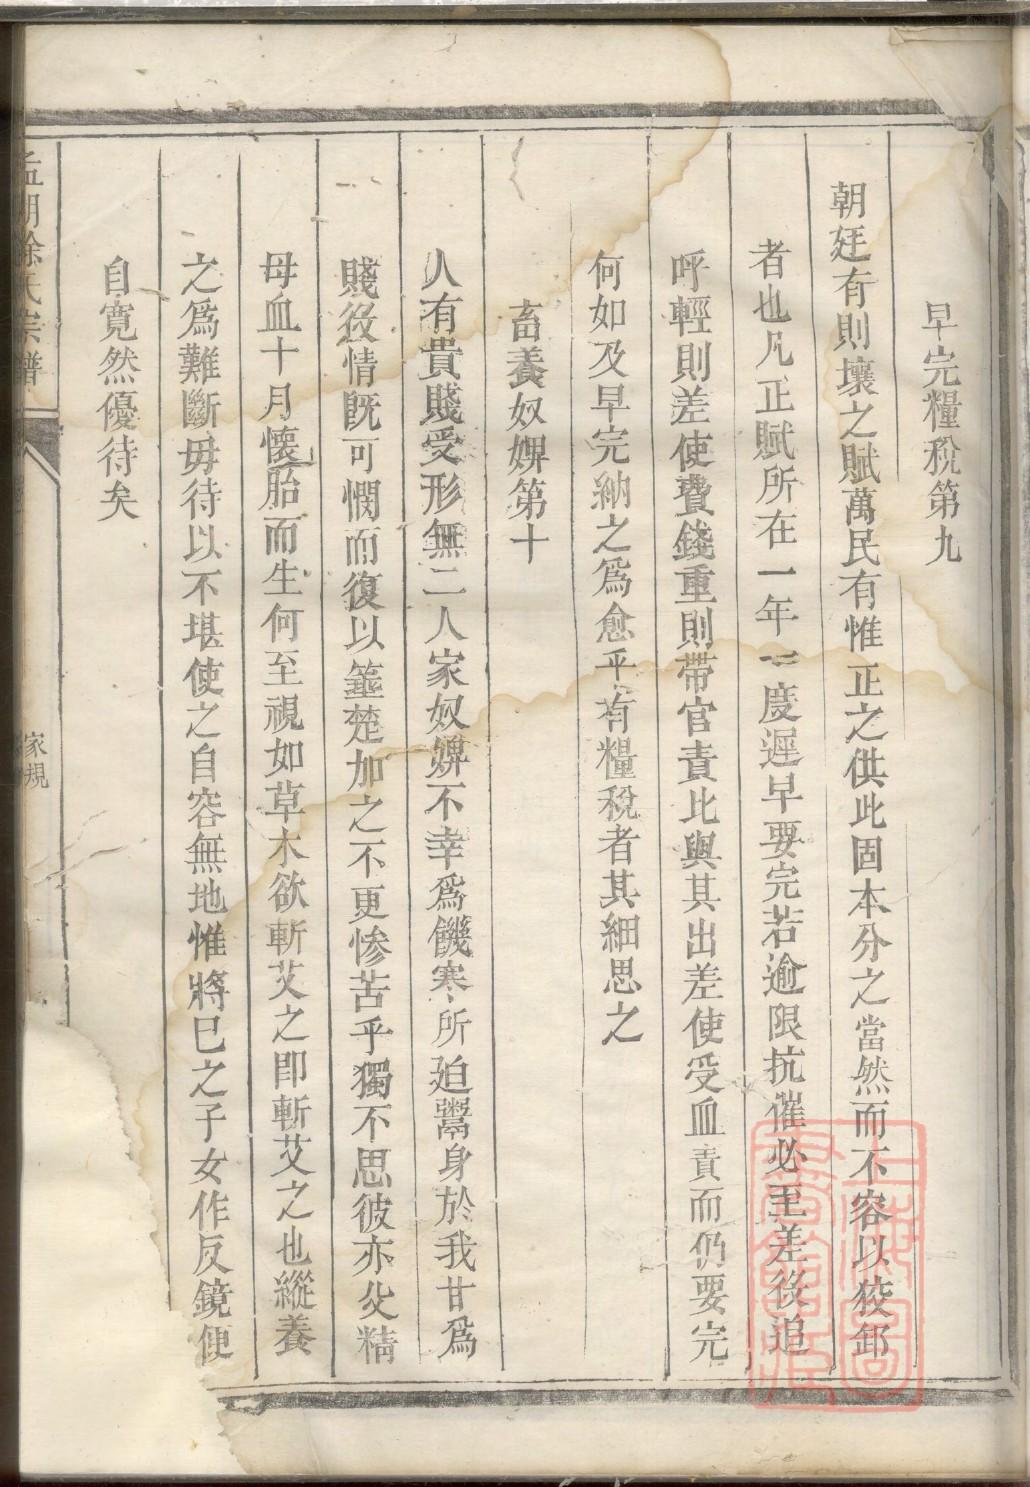 早完糧稅第九
朝廷有則壤之賦萬民有惟正之供此固本分之當然而不容以狡卸
者也凡正賦所在一年一度遲早要完若逾限抗催必至差役追
呼輕則差使費錢重則帶官責比與其出差使受血責而仍要完
何如及早完納之爲愈乎有糧稅者其細思之
畜養奴婢第十
人有貴賤受形無二人家奴婢不幸爲饑寒所廹鬻身於我甘爲
賤役情旣可憫而復以箠楚加之不更慘苦乎獨不思彼亦父精
母血十月懷胎而生何至視如草木欲斬艾之即斬艾之也縱養
之爲難斷毋待以不堪使之自容無地惟將已之子女作反鏡便
自寬然優待矣
孟湖徐氏宗譜
家規
上海圖書館藏